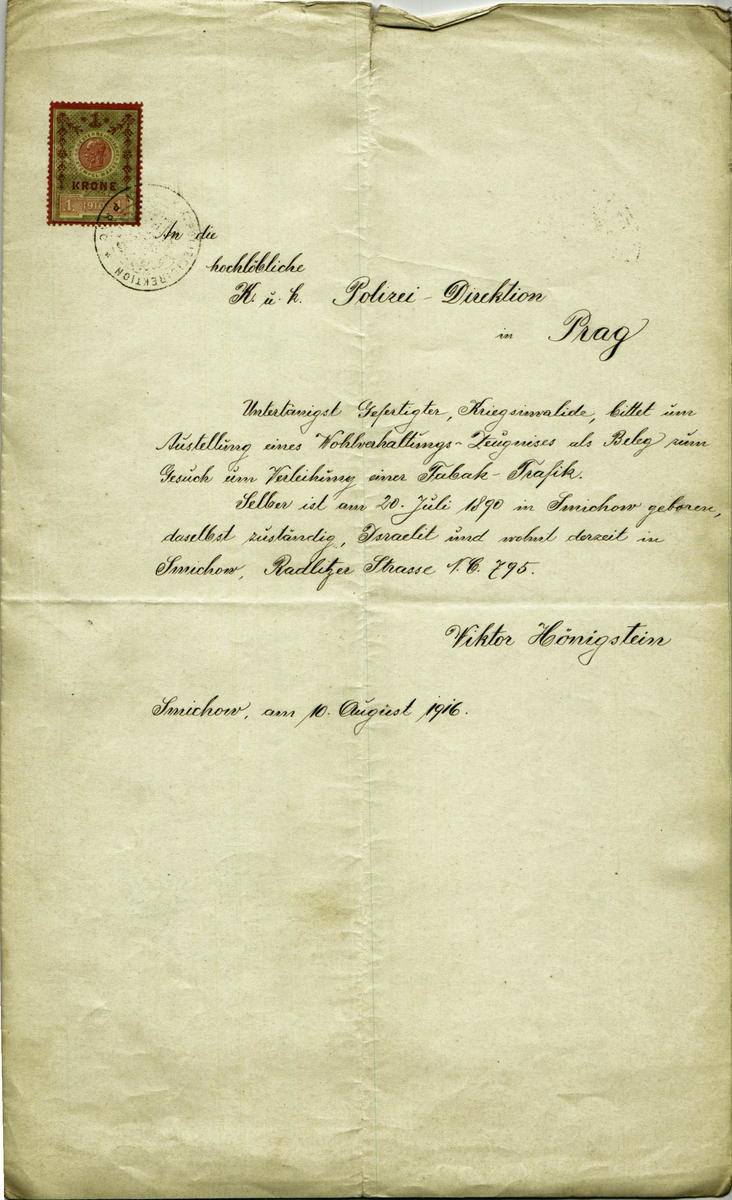 1
KRONE
1 1910 1
An die
hochlöbliche
K. u. k. Polizei-Direktion
in Prag
Untertänigst Gefertigter, Kriegsinvalide, bittet um
Austellung eines Wohlverhaltungs-Zeugnises als Beleg zum
Gesuch um Verleihung einer Tabak-Trafik.
Selber ist am 20. Juli 1890 in Smichow geboren,
daselbst zuständig, Israelit und wohnt derzeit in
Smichow, Radlitzer Strasse N.C. 795.
Viktor Hönigstein
Smichow, am 10. August 1916.